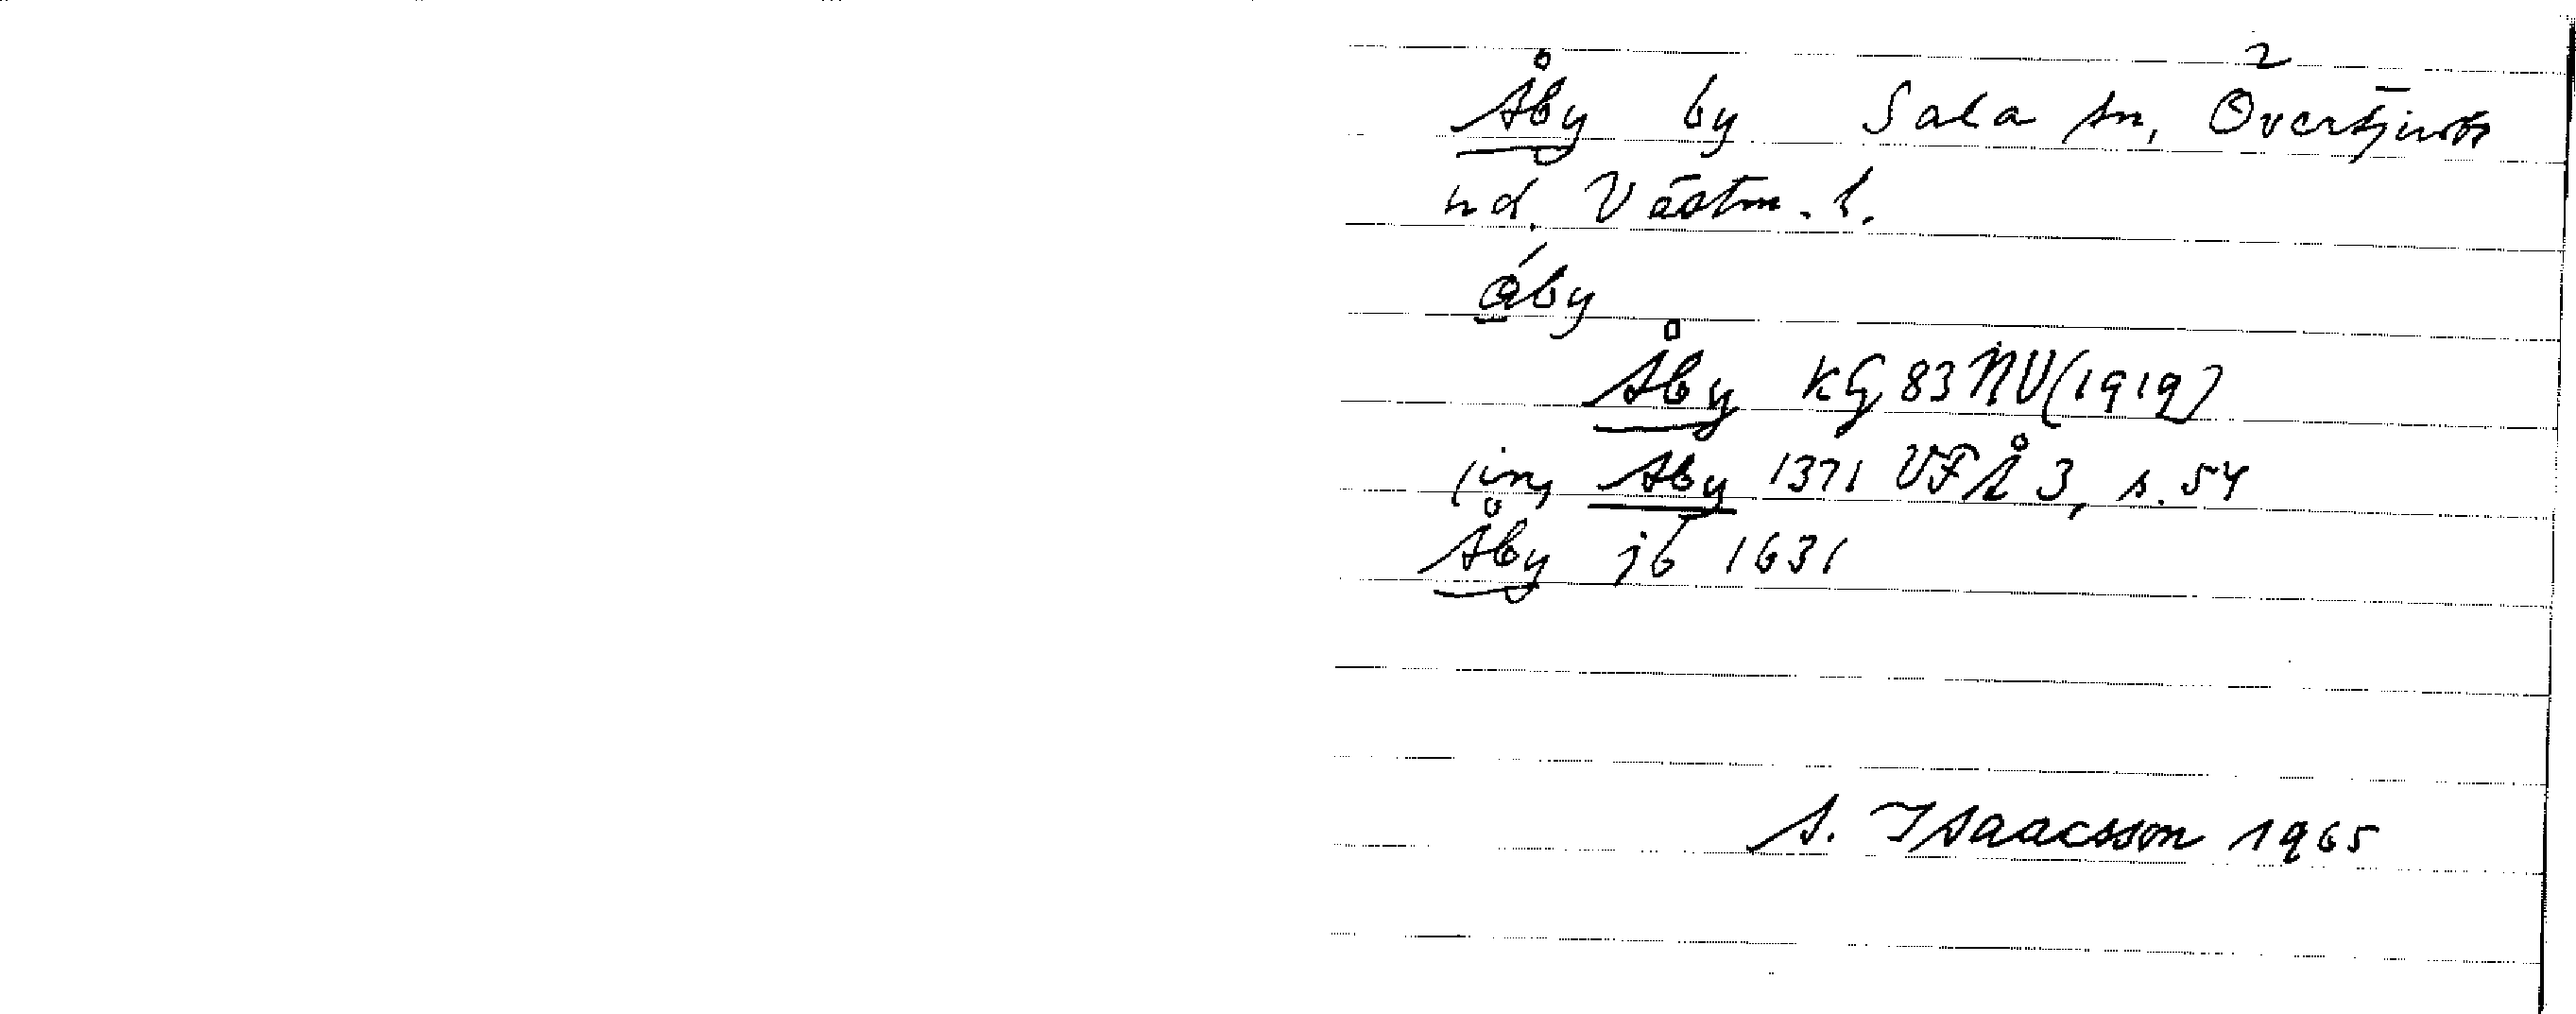 2
Åby by Sala sn, Övertjurbo
hd, Västm. l.
åby
Åby KG 83 NV (1919)
(in) Aby 1371 VFÅ 3, s. 54
Åby jb 1631
S. Isaacsson 1965